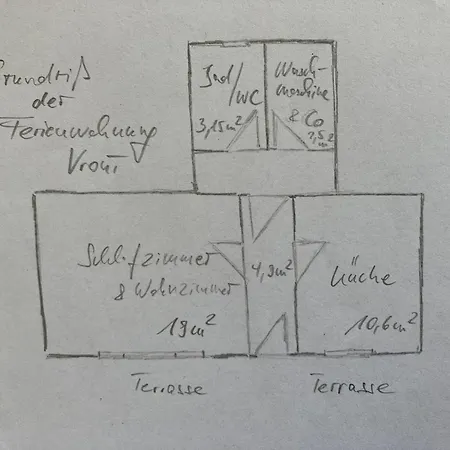 Grundriß
der
Ferienwohnung
Vront
Bad
/WC
3,15m²
Wasch-
maschine
& Co
1,5m²
Schlafzimmer
& Wohnzimmer
19m²
4,9m²
Küche
10,6m²
Terrasse
Terrasse